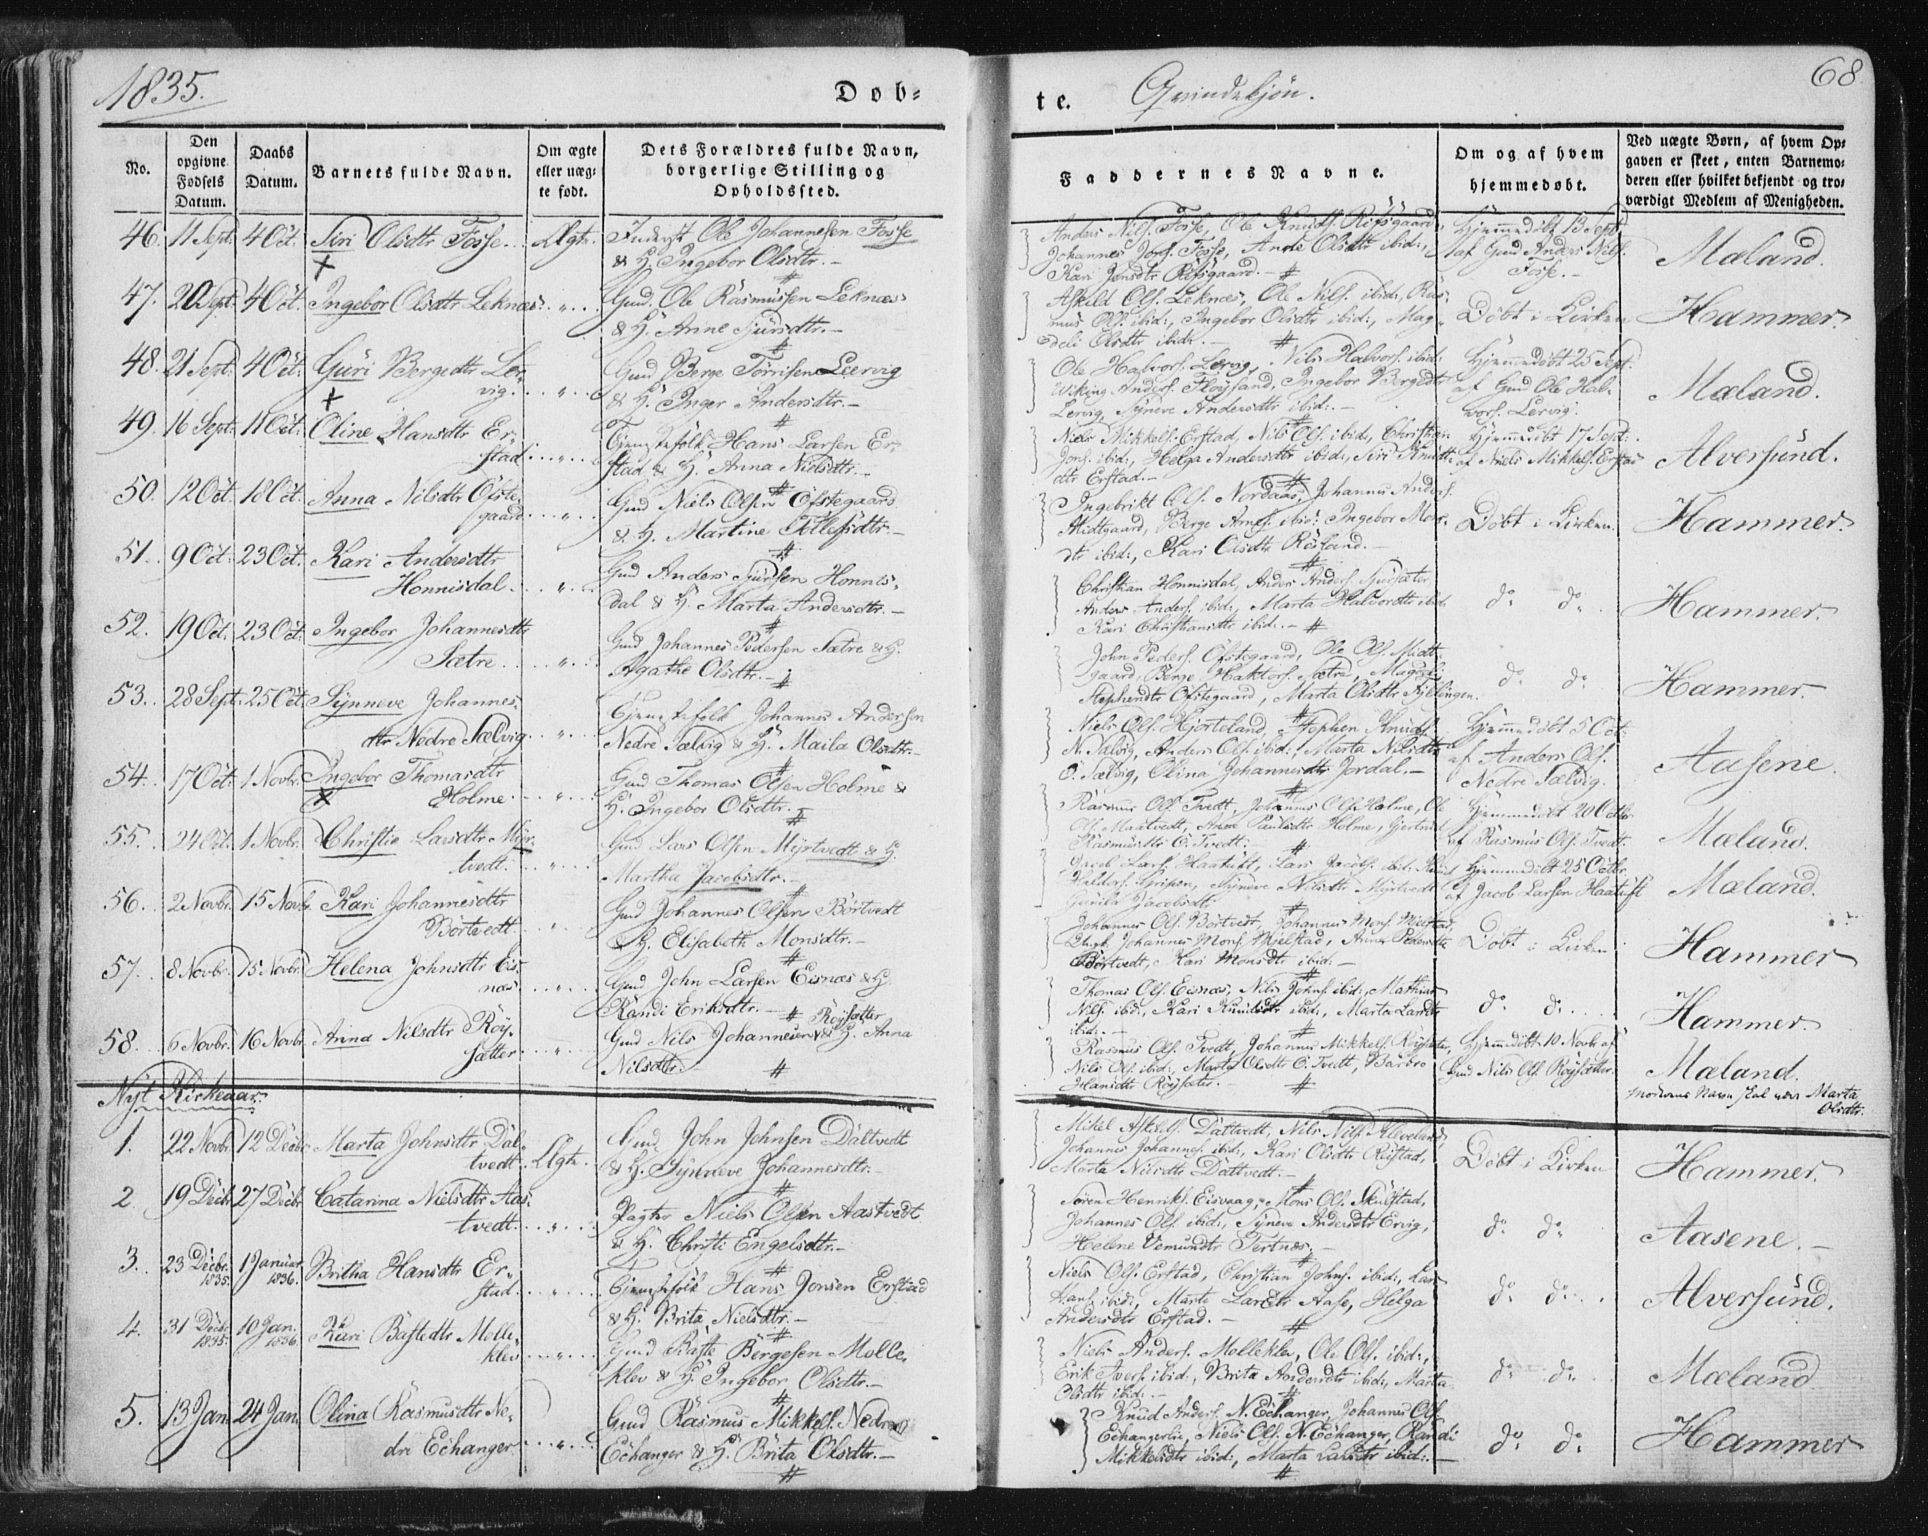 1835.
Døb-
te. Qvindekjön.
68
No.
Den opgivne Fødsels Datum.
Daabs Datum.
Barnets fulde Navn.
Om ægte eller uægte født.
Dets Forældres fulde Navn, borgerlige Stilling og Opholdssted.
Faddernes Navne.
Om og af hvem hjemmedøbt.
Ved uægte Børn, af hvem Opgaven er skeet, enten Barnemoderen eller hvilket bekjendt og troværdigt Medlem af Menigheden.
46. 11 Sept. 4 Oct. Siri Olsdtr Fosse Ægte. Ole Johannesen Fosse
& H. Ingebor Olsdtr.
Anders Nilss. Fosse, Ole Knuds. Risgaard,
Johannes Fosse, Anne Olsdtr ibid:,
Kari Jensdtr Risgaard.
Hjemmedöbt 13 Sept
af Gmd Anders Nils.
Fosse.
Mæland.
47. 20 Sept. 4 Oct. Ingebor Olsdtr Leknæs Gmd. Ole Rasmussen Leknæs
& H. Anne Sjursdtr.
Askeld Ols. Leknæs, Ole Nils. ibid:, Ras-
mus Ols. ibid:, Ingebor Olsdtr ibid:, Mag-
deli Olsdtr ibid:.
Döbt i Kirken
Hammer.
48. 21 Sept. 4 Oct. Guri Bergedtr Ler-
vig. Gmd Berge Torrisen Leervig
& H. Inger Andersdtr.
Ole Halvors. Lervig, Nils Halvors. ibid:
Wiking Anders. Flöysand, Ingebor Bergedtr
Lervig, Syneve Andersdtr ibid:.
Hjemmedöbt 25 Sept.
af Gmd Ole Hal-
vors. Lervig.
Mæland.
49. 16 Sept. 11 Oct. Oline Hansdtr Er-
stad Hans Larsen Er-
stad & H. Anna Nielsdtr.
Niels Mikkels. Erstad, Nils Ols. ibid:, Christian
Jons. ibid:, Helga Andersdtr ibid:, Siri Knuts-
dtr Erstad.
Hjemmedöbt 17 Sept:
af Niels Mikkels. Erstad
Alversund.
50. 12 Oct. 18 Oct. Anna Nilsdtr Ofste-
gaard Gmd Niels Olsen Ofstegaard
& H. Martine Tollefsdtr.
Ingebrikt Ols. Nordaas, Johannes Anders.
Midtgaard, Berge Arnes. ibid: Ingebor Mons-
dtr ibid:, Kari Olsdtr Rösland.
Döbt i Kirken.
Hammer.
51. 9 Oct. 23 Oct. Kari Andersdtr
Honnisdal Gmd Anders Sjursen Honnis-
dal & H. Marta Andersdtr.
Christian Honnisdal, Anders Anders. Sjursæter
Anders Anders. ibid:, Marta Halvorsdtr ibid
Kari Christiansdtr ibid:.
do do
Hammer.
52. 19 Oct. 23 Oct. Ingebor Johannesdtr
Sætre Gmd Johannes Pedersen Sætre & H.
Agathe Olsdtr.
John Peders. Ofstegaard, Ole Ols. Midt-
gaard, Berge Haktors. Sætre,
Stephensdtr Ofstegaard, Marta Olsdtr Fyllingen.
do do
Hammer.
53. 28 Sept. 25 Oct. Synneve Johannes-
dtr Nedre Sælvig Johannes Andersen
Nedre Sælvig & H. Maila Olsdtr.
Niels Ols. Hjorteland, Stephen Knuds.
N. Sælvig, Anders Ols. ibid:, Marta Nilsdtr
Ö. Sælvig, Olina Johannesdtr Jordal.
Hjemmedöbt 5 Oct:
af Anders Ols.
Nedre Sælvig.
Aasene.
54. 17 Oct. 1 Novbr. Ingebor Thomasdtr
Holme Gmd Thomas Olsen Holme &
H. Ingebor Olsdtr.
Rasmus Ols. Tvedt, Johannes Ols. Holme, Ole
Ols. Maatvedt, Anne Paulsdtr Holme, Gjertrud
Rasmusdtr Ö. Tvedt.
Hjemmedöbt 20 Octbr
af Rasmus Ols. Tvedt.
Mæland.
55. 24 Oct. 1 Novbr. Christie Larsdtr Myr-
tvedt. Gmd Lars Olsen Myrtvedt & H.
Martha Jacobsdtr.
Jacob Lars. Haatuft, Lars Jacobs. ibid:, Knud
Haldors. Gripen, Syneve Nilsdtr Myrtvedt
Gurila Jacobsdtr
Hjemmedöbt 25 Octbr
af Jacob Larsen Haatuft
Mæland.
56. 2 Novbr. 15 Novbr. Kari Johannesdtr
Börtvedt Gmd Johannes Olsen Börtvedt
& H. Elisabeth Monsdtr.
Johannes Ols. Börtvedt, Johannes Mons. Mjelstad,
Ungk. Johannes Mons. Mjelstad, Anna Pedersdtr
Börtvedt, Kari Monsdtr ibid:
Döbt i Kirken
Hammer
57. 8 Novbr. 15 Novbr. Helena Johnsdtr Eis-
næs Gmd John Larsen Eisnæs & H.
Randi Eriksdtr.
Thomas Ols. Eisnæs, Nils Johns. ibid:, Mathias
Nils. ibid:, Kari Knudsdtr ibid:, Marta Larsdtr
ibid:.
do do
Hammer.
58. 6 Novbr. 16 Novbr. Anna Nilsdtr Röy-
sætter Röysætter
Gmd Nils Johannesen & H. Anna
Nilsdtr.
Rasmus Ols. Tvedt, Johannes Mikkels. Röysæter,
Nils Ols. ibid:, Marta Olsdtr Ö. Tvedt, Barbro
Hansdtr Röysæter.
Hjemmedöbt 10 Novbr af
Gmd Nils Ols. Röysætter.
Mæland.
Moderens Navn skal være Marta
Olsdtr.
Nyt Kirkeaar.
1. 22 Novbr. 12 Decbr Marta Johnsdtr Dal-
tvedt Ægte. Gmd John Johnsen Daltvedt
& H. Synneve Johannesdtr.
Mikel Askels. Daltvedt, Nils Nils. Aleveland
Johannes Johannes. ibid:, Kari Olsdtr Röstad,
Marta Nilsdtr Daltvedt.
Döbt i Kirken
Hammer.
2. 19 Decbr 27 Decbr Catarina Nielsdtr Aas-
tvedt. Pagter Niels Olsen Aastvedt
& H. Christi Engelsdtr.
Sören Henriks. Eisvaag, Mons Ols. Skulstad,
Johannes Ols. ibid:, Syneve Andersdtr Ervig,
Helene Vemundtr Tertnæs.
do do
Aasene.
3. 23 Decbr. 1835. 1 Januar 1836. Britha Hansdtr Er-
stad Hans Jonsen Erstad
& H. Brita Nielsdtr.
Niels Ols. Erstad, Christian Johns. ibid:, Lars
Hans. ibid:, Marte Larsdtr Aase, Helga
Andersdtr Erstad.
do do
Alversund.
4. 31 Decbr 1835. 10 Jan. 1836. Kari Bastedtr Molle-
klev Gmd Baste Bergesen Molle-
klev & H. Ingebor Olsdtr.
Niels Anders. Molleklev, Ole Ols. ibid:,
Erik Ivers. ibid:, Brita Andersdtr ibid:, Marta
Olsdtr ibid:
do do
Mæland
5. 13 Jan. 24 Jan. Olina Rasmusdtr Ne-
dre Echanger Gmd Rasmus Mikkels. Nedre
Echanger & H. Brita Olsdtr.
Knud Anders. N. Echanger, Johannes Ols.
Echangerlie, Niels Ols. N. Echanger, Randi
Mikkelsdtr ibid:, Marta Larsdtr ibid:
do do
Hammer